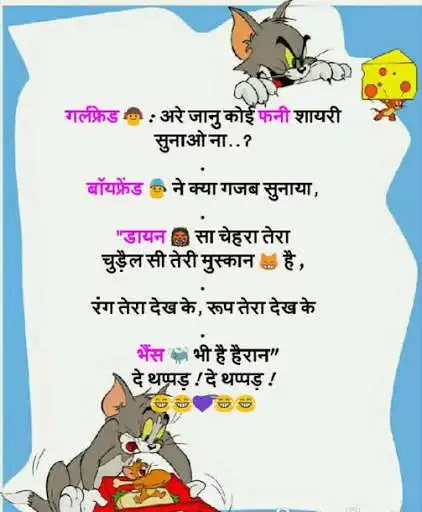 गर्लफ्रेंड 👧 : अरे जानु कोई फनी शायरी
सुनाओ ना..?
.
बॉयफ्रेंड 👦 ने क्या गजब सुनाया,
.
"डायन 👹 सा चेहरा तेरा
चुड़ैल सी तेरी मुस्कान 😸 है ,
.
रंग तेरा देख के, रूप तेरा देख के
.
भैंस 🐃 भी है हैरान”
दे थप्पड़ ! दे थप्पड़ !
😂😂💜😂😂